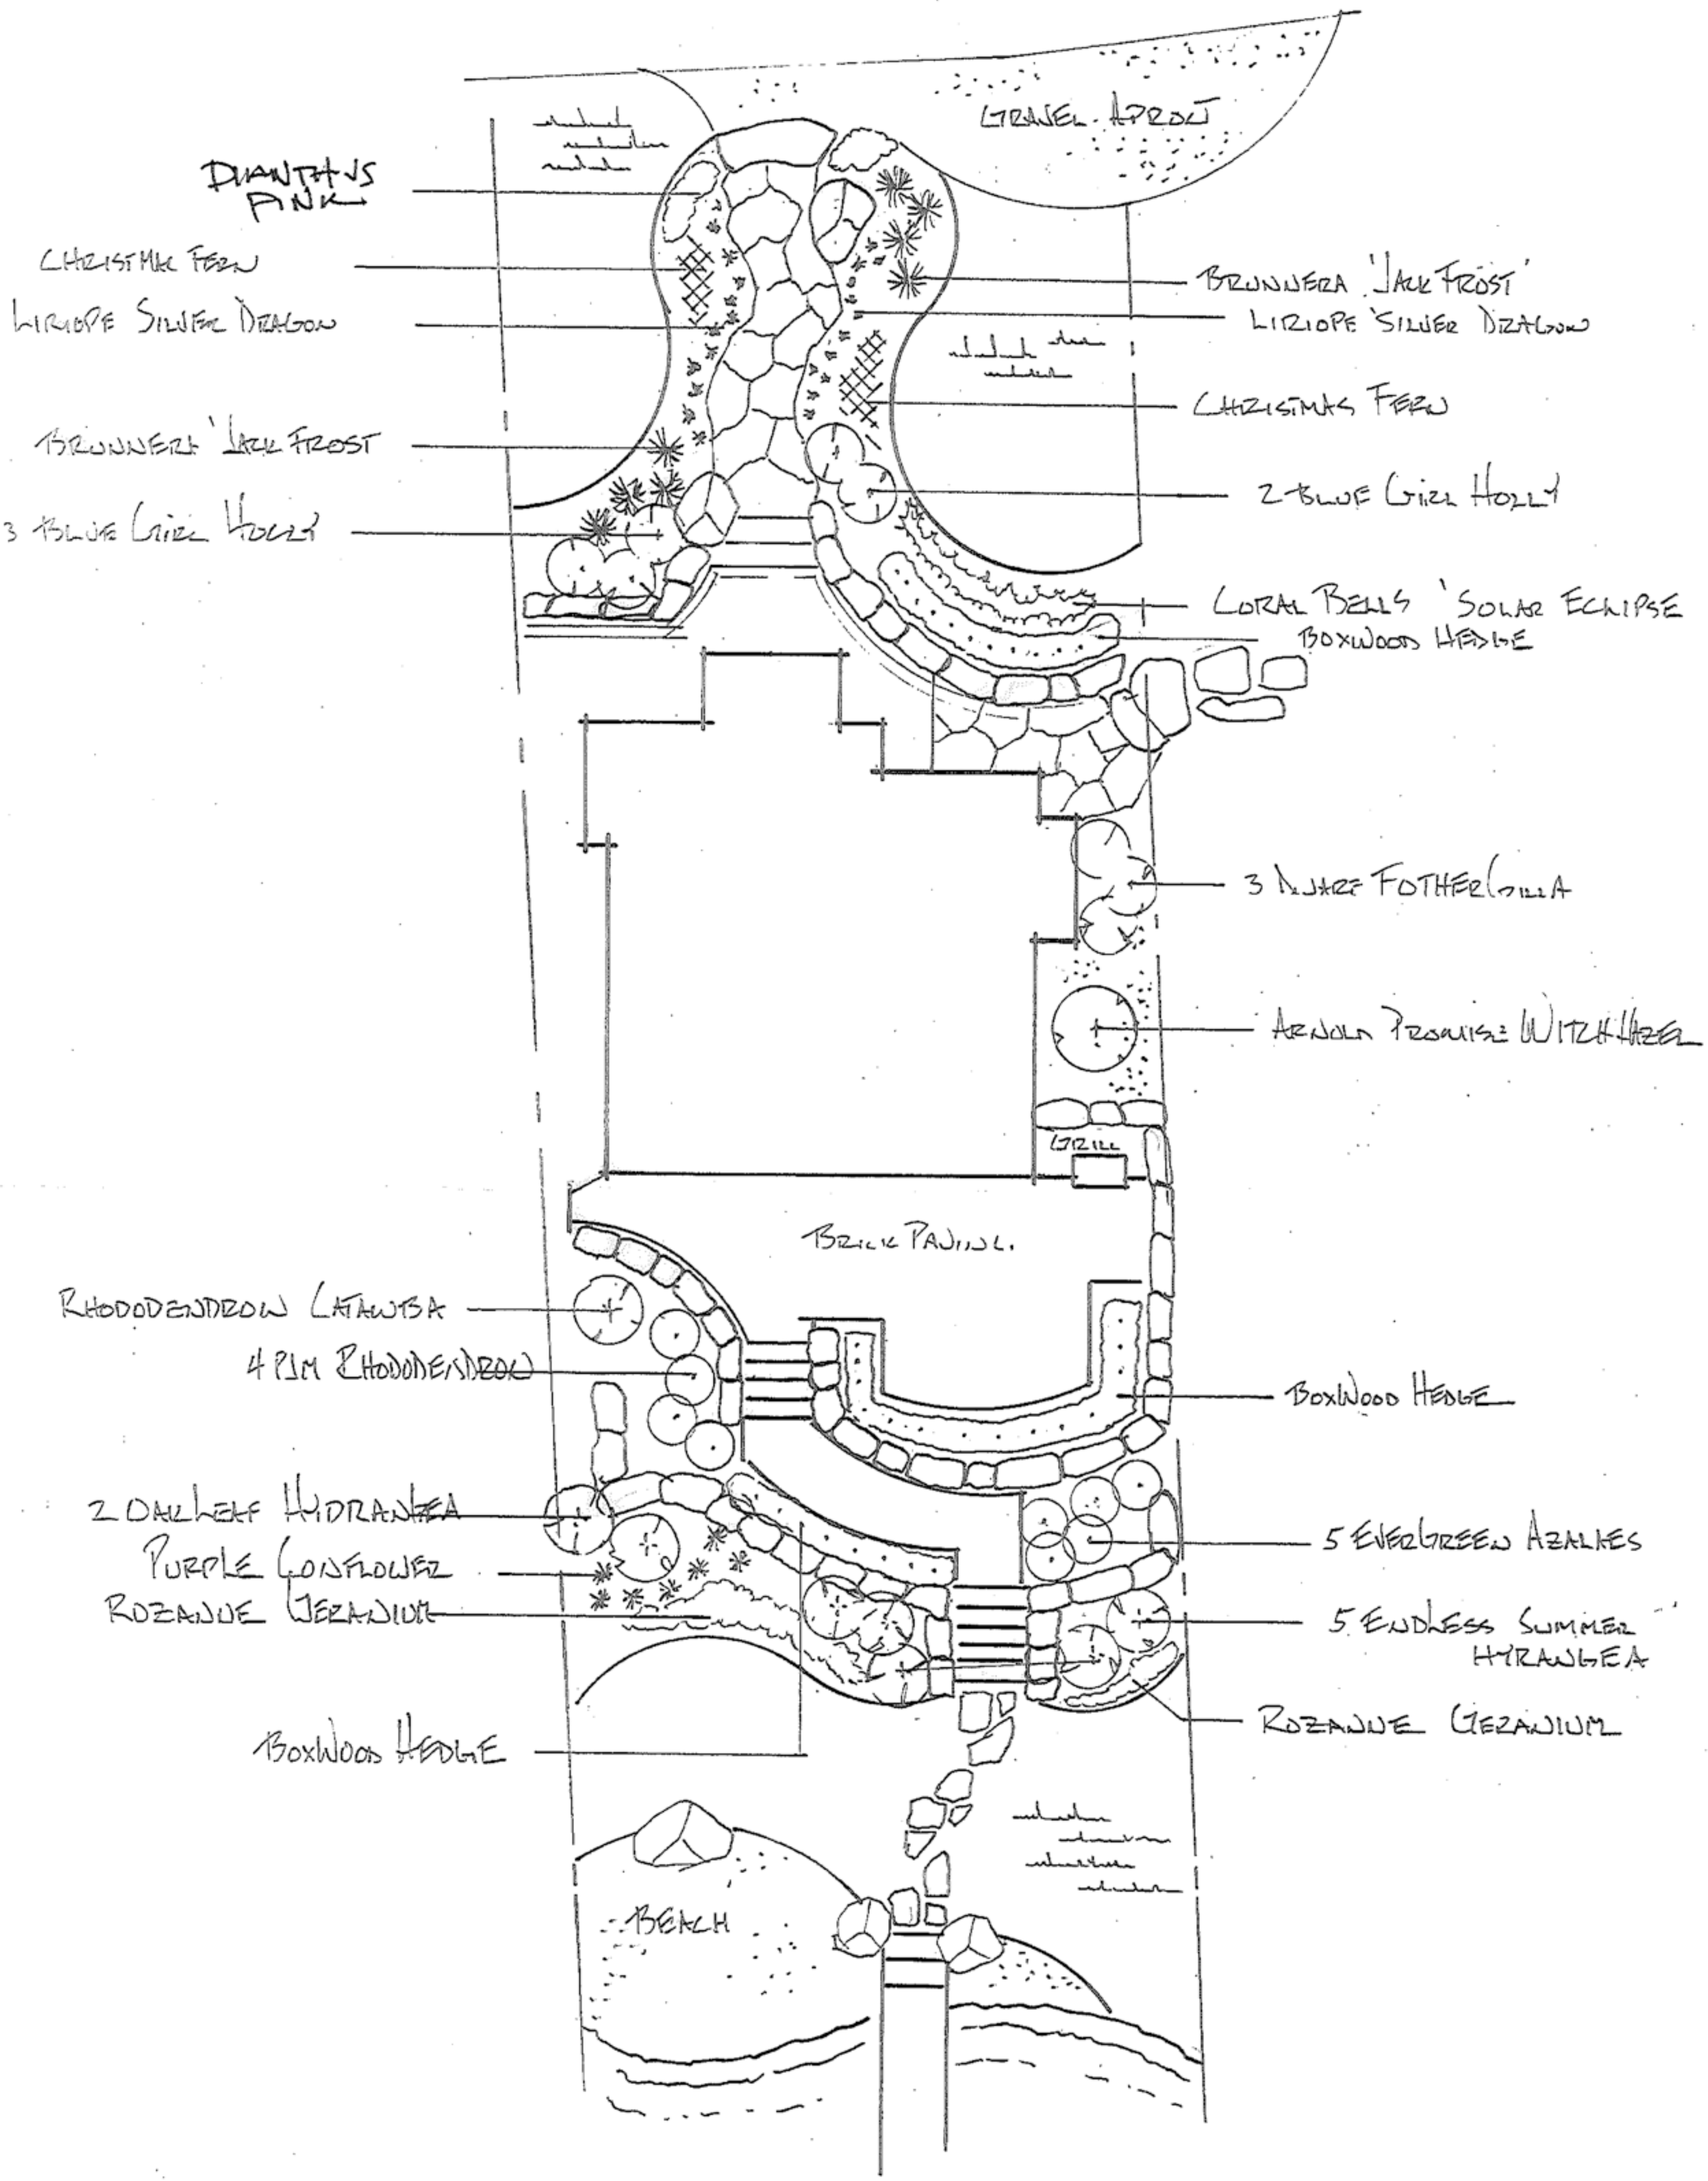 GRAVEL APRON
DIANTHUS
PINK
CHRISTMAS FERN
LIRIOPE SILVER DRAGON
BRUNNERA 'JACK FROST'
LIRIOPE 'SILVER DRAGON
CHRISTMAS FERN
BRUNNERA 'JACK FROST
2 BLUE GIRL HOLLY
3 BLUE GIRL HOLLY
CORAL BELLS 'SOLAR ECLIPSE
BOXWOOD HEDGE
3 DWARF FOTHERGILLA
ARNOLD PROMISE WITCH HAZEL
GRILL
BRICK PAVING.
RHODODENDRON CATAWBA
4 PJM RHODODENDRON
BOXWOOD HEDGE
2 OAKLEAF HYDRANGEA
PURPLE CONFLOWER
ROZANNE GERANIUM
5 EVERGREEN AZALAES
5 ENDLESS SUMMER
HYRANGEA
ROZANNE GERANIUM
BOXWOOD HEDGE
BEACH